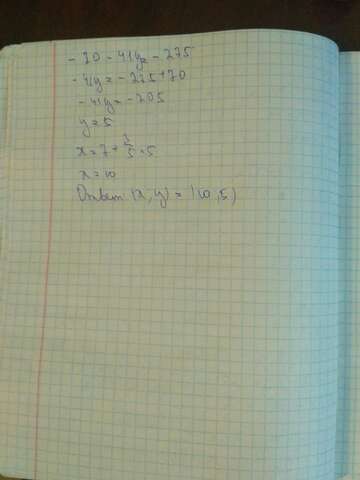 - 70 - 41y = - 275
- 41y = - 275 + 70
- 41y = - 205
y = 5
x = 7 + 3/5 · 5
x = 10
Ответ (x, y) = (10, 5)